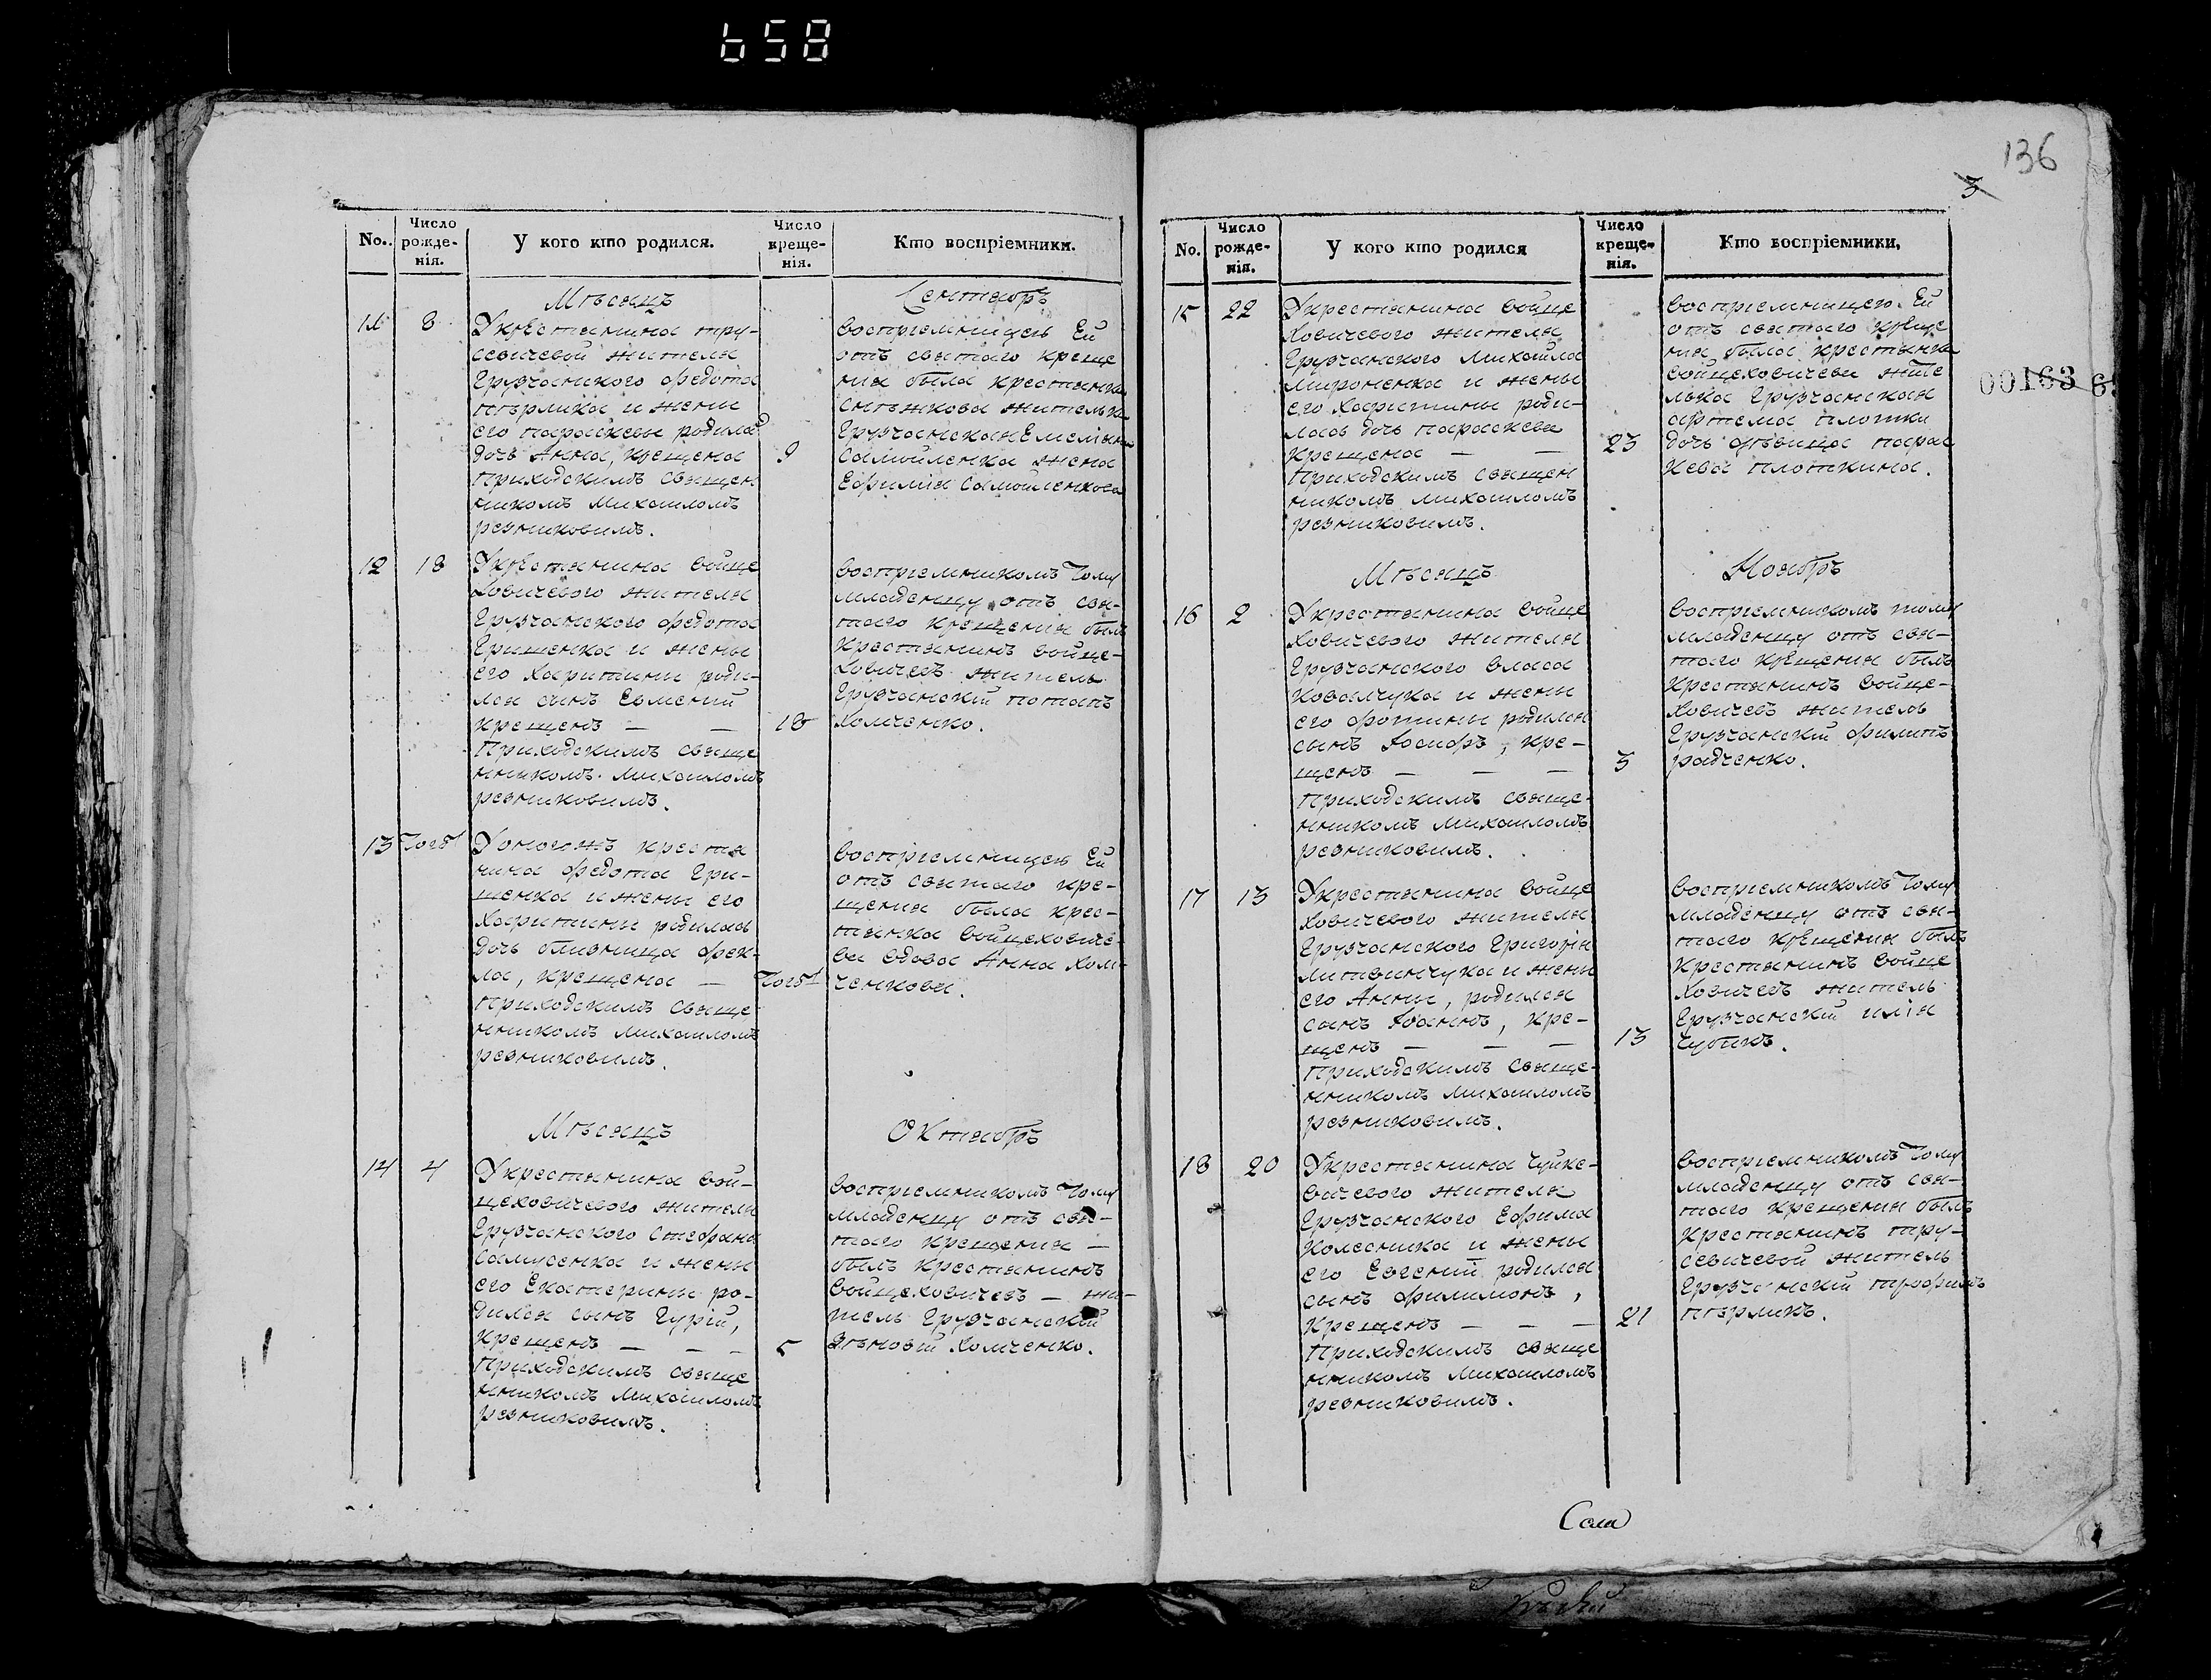 658
136
3
00163 6
No. Число рожде- нія. У кого кто родился. Число креще- нія. Кто воспріемники.
Мѣсяцъ Сентябрь
11 8
Укрестянина тру-
севичевой жителя
Грузчанского Федота
пѣрлика и жены
его параскевы родилась
дочь Анна, крещена
9
Приходскимъ священ
никомъ Михаиломъ
резниковимъ.
воспріемницею Ей
отъ святаго креще
нія была крестянка
снѣжкова жителька
Грузчанская Емеліяна
Самойленка жена
Ефимія Самойленкова
12 18
Укрестянина войце
ховичевого жителя
Грузчанского Федота
Грищенка и жены
его Харитини роди-
лся сынъ Евмений
крещенъ — —
18
Приходскимъ свяще
нникомъ Михаиломъ
резниковимъ.
воспріемникомъ Тому
младенцу отъ свя-
таго крещенія былъ
крестянинъ войце-
ховичевъ житель
Грузчанскій потапъ
Холченко.
13 Тогож
Уоногожъ крестя
нина Федота Гри-
щенка и жены его
Харитини родилась
дочь близница Фек-
ла, крещена —
Тогож
Приходскимъ свяще
нникомъ Михаиломъ
резниковимъ.
воспріемницею Ей
отъ святаго кре-
щенія была крес-
тянка войцеховиче-
ва вдова Анна Хол-
ченкова.
Мѣсяцъ Октябрь
14 4
Укрестянина вой-
цеховичевого жителя
Грузчанского Стефана
Самусенка и жены
его Екатерини ро-
дился сынъ Гурій,
крещенъ — — —
5
Приходскимъ свяще
нникомъ Михаиломъ
резниковимъ.
воспріемникомъ Тому
младенцу отъ свя-
таго крещенія —
былъ крестянинъ
войцеховичевъ — жи-
тель Грузчанскій
Зѣновій Холченко.
No. Число рожде- нія. У кого кто родился Число креще- нія. Кто воспріемники.
15 22
Укрестянина войце
ховичевого жителя
Грузчанского Михайла
мироненка и жены
его Харитины роди-
лась дочь параскева
крещена — —
23
Приходскимъ священ
никомъ Михаиломъ
резниковимъ.
воспріемницею Ей
отъ святаго креще
нія была крестянка
войцеховичева жите
лька Грузчанская
артема плотки
дочь дѣвица парас
кева плоткина.
Мѣсяцъ Ноябрь
16 2
Укрестянина войце
ховичевого жителя
Грузчанского власа
ковалчука и жены
его Фотини родился
сынъ Іосифъ, кре-
щенъ — — —
3
Приходскимъ свяще-
нникомъ Михаиломъ
резниковимъ.
воспріемникомъ тому
младенцу отъ свя-
таго крещенія былъ
крестянинъ войце-
ховичевъ житель
Грузчанскій Филипъ
радченко.
17 13
Укрестянина войце
ховичевого жителя
Грузчанского Григорія
литвинчука и жены
его Анны, родился
сынъ Іоаннъ, кре-
щенъ — — —
13
Приходскимъ свяще-
нникомъ Михаиломъ
резниковимъ.
воспріемникомъ Тому
младенцу отъ свя-
таго крещенія былъ
крестянинъ войце
ховичевъ житель
Грузчанскій илія
Чубикъ.
18 20
Укрестянина Чуйке-
вичевого жителя
Грузчанского Ефима
колесника и жены
его Евгеніи родился
сынъ Филимонъ,
крещенъ — — —
21
Приходскимъ свяще
нникомъ Михаиломъ
резниковимъ.
воспріемникомъ Тому
младенцу отъ свя-
таго крещенія былъ
крестянинъ тру-
севичевой житель
Грузчанскій трофимъ
пѣрликъ.